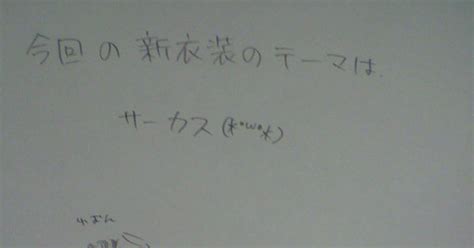 今回の新衣装のテーマは、
サーカス(*°ω°*)
りぼん